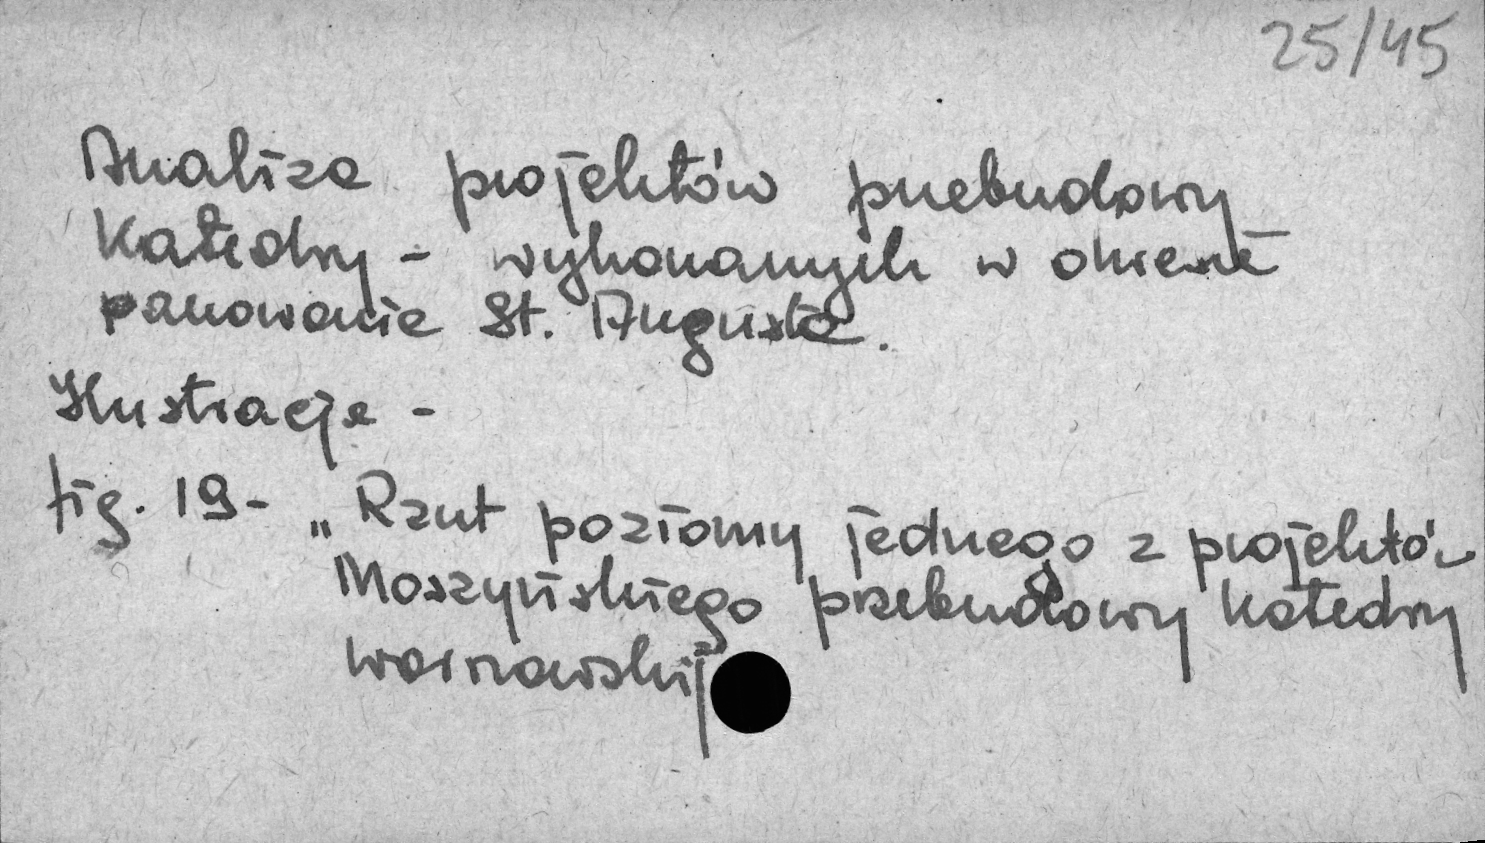 25/45
Analiza projektów przebudowy
Katedry - wykonanych w okresie
panowania St. Augusta.
Ilustracje -
fig. 19 - „Rzut poziomy jednego z projektów
Moszyńskiego przebudowy Katedry
warszawskiej